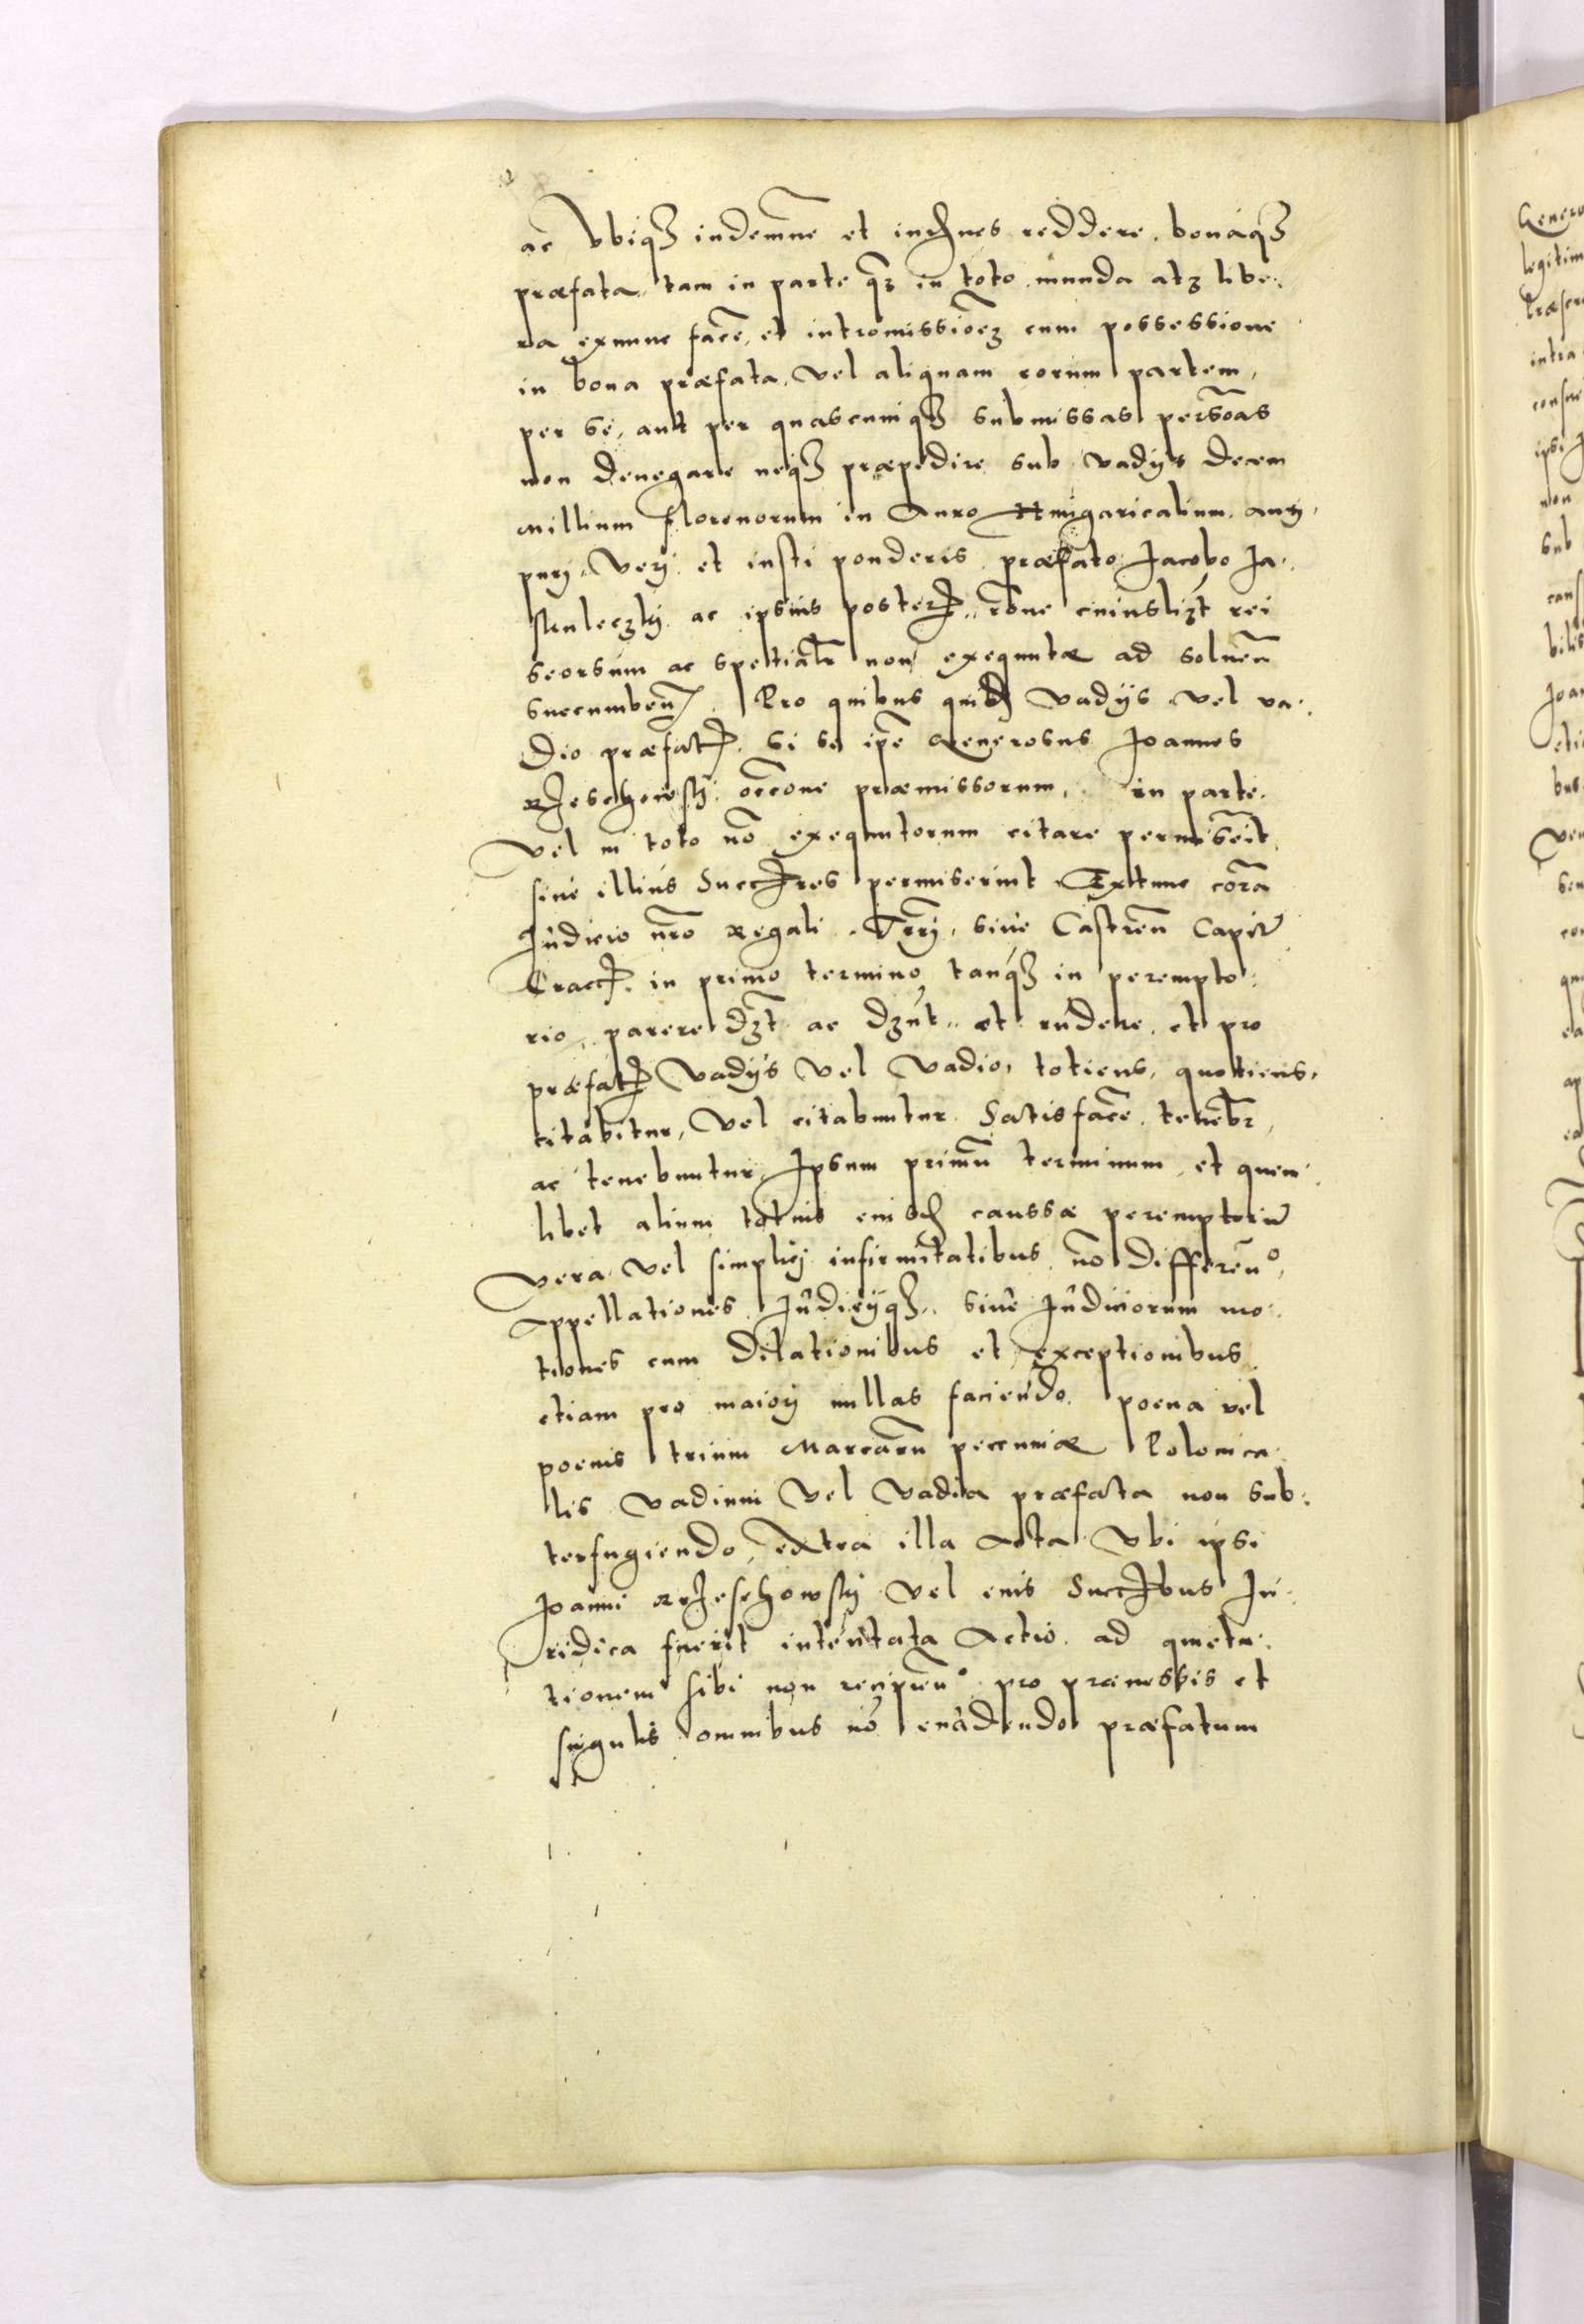 ac vbiqȝ indemne et indēnes reddere. bonaqȝ
præfata, tam in parte qȝ in toto munda atqȝ libe:
ra exnunc facē, et intromissioēȝ cum possessione
in bona præfata, vel aliquam eorum partem,
per se, aut per quascunqȝ submissas persōas
non denegare neqȝ præpedire sub vadijs decem
millium florenorum in Auro Hungaricalium, aurj,
purj, verj et iusti ponderis præfato Jacobo Ja:
ac ipsius poster, rōne cuiuslizt rei
seorsum ac spetialr non exequutæ ad soluen̄
succumben̄. Pro quibus quid vadijs vel va:
dio præfat. si se ipē Generosus Joannes
Rzeschowskj occōne præmissorum, in parte
vel in toto nō exequutorum citare permiserit,
siue illius Succres permiserint Extunc corā
Judicio nrō Regali, Trrj, siue Castren̄ Capit
Crac. in primo termino tanqȝ in perempto:
rio, parere dzt ac dznt, et rñdere et pro
præfat vadijs vel vadio, totiens, quotiens,
citabitur, vel citabuntur Satisfacē tenebr,
ac tenebuntur, Ipsum primū terminum, et quem:
libet alium totius eiusd caussæ peremptoriū
vera vel simplicj infirmitatibus nō differen̄o,
Appellationes Judicijqȝ, siue Judiciorum mo:
tiones cum dilationibus et exceptionibus
etiam pro maiorj nullas faciendo, poena vel
poenis trium Marcarū pecuniæ Polonica:
lis vadium vel vadia præfata non sub:
terfugiendo, extra illa Acta vbi ipsi
Joanni Rzeschowskj vel eius Succrbus Ju:
ridica fuerit intentata Actio. ad quieta:
tionem sibi non recipien̄o pro præmissis et
singulis omnibus nō euadendo præfatum